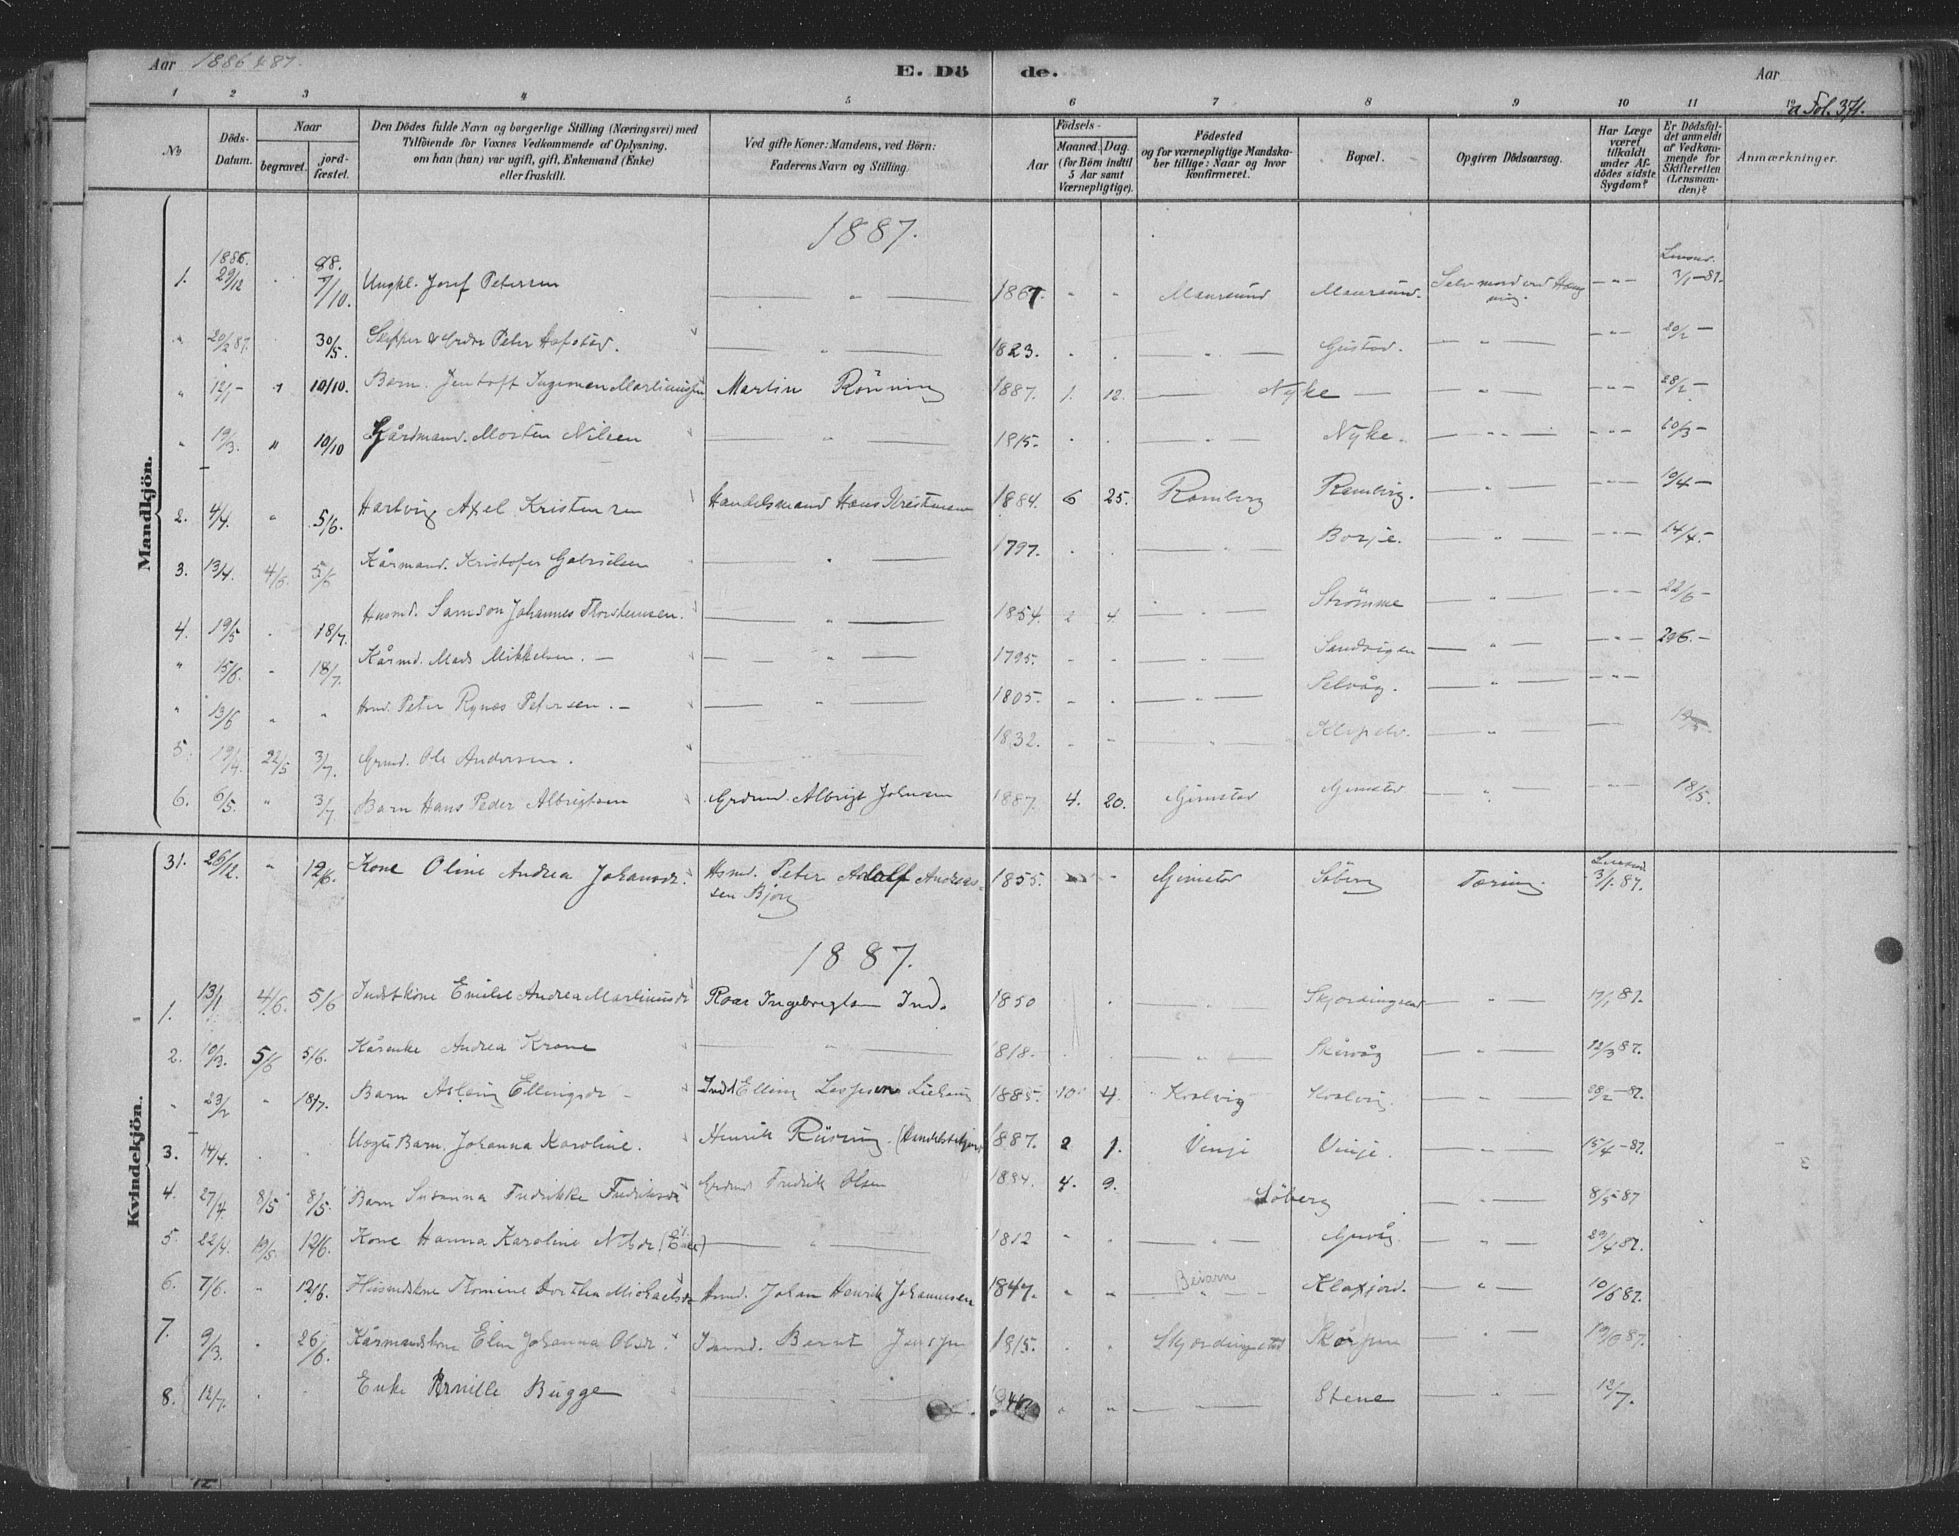 Aar 1886 & 87. E. Dö de. Aar
1 2 3 4 5 6 7 8 9 10 11 12
a Fol. 371.
No
Döds-Datum.
Naar
begravet.
jord-fæstet.
Den Dödes fulde Navn og borgerlige Stilling (Næringsvei) med
Tilföiende for Voxnes Vedkommende af Oplysning,
om han (hun) var ugift, gift, Enkemand (Enke)
eller fraskilt.
Ved gifte Koner: Mandens, ved Börn:
Faderens Navn og Stilling.
Födsels-
Aar
Maaned. Dag.
(for Börn indtil
5 Aar samt
Værnepligtige).
Födested
og for værnepligtige Mandska-
ber tillige: Naar og hvor
konfirmeret.
Bopæl.
Opgiven Dödsaarsag.
Har Læge
været
tilkaldt
under Af-
dödes sidste
Sygdom?
Er Dödsfal-
det anmeldt
af Vedkom-
mende for
Skifteretten
(Lensman-
den)?
Anmærkninger.
Mandkjön.
1887.
1. 1886. 29/12 88. 7/10. Ungkl. Josef Petersen — " — 1867. " " Maursund Maursund. Selvmord ved Hæng ning. - " - Lensmd. 3/1-87.
" 20/2 87. 30/5. Skipper & Grdm Peter Hofstad. — " — 1823. . . — " — Gustad. — " — - " - 20/2 -
" 12/1 - " 10/10. Barn. Jentoft Ingeman Martinussen Martin Rönning 1887. 1. 12. — Nyke — — " — - " - 28/2 -
" 19/3. " 10/10 Kårmand. Morten Nilsen — " — 1815. . . Nyke. — " " — - " - 10/3 -
2. 4/4. " 5/6. Hartvig Axel Kristensen Handelsmand Hans Kristensen 1884. 6 25. Ramberg Ramberg. — " — - " - 10/4 -
3. 13/4. 4/6. 5/6 Kårmand. Kristofer Gabrielsen — " — 1797. . . — " — Borje. — " — - " - 14/4. -
4. 19/5 . 18/7. Husmd. Samson Johannes Thorstensen. — " — 1854. 2 4. — " — Strömme — " — - " - 22/6 -
" 15/6. - 18/7. Kårmd. Mads Mikkelsen. - — " — 1795. - - — " — Sandvigen — " — - " - 296. -
" 13/6 " " Hsmd. Peter Rynæs Petersen. - — " — 1805. - - — " — Selvåg. — " — - " -
5. 19/4. 22/5 3/7. Grmd. Ole Andersen. 1832. - - " — " —
6. 6/5. " 3/7. Barn Hans Peder Albrigtsen Grdmd. Albrigt Johnsen 1887. 4. 20. Gimstad Gimstad — " — - " - 18/5.
Kvindekjön.
31. 26/12. " 12/6. Kone Oline Andrea Johansdr. Hsmd. Peter Adolf Andreas-
sen Bjørg 1855. - Gimstad Söberg Tæring. Lensmd 3/1. 87.
1887.
1. 13/1 4/6. 5/6 Indstkone Emilie Andrea Martinusdr Roar Ingebrigtsen Ind. 1850 . . Skjordingstad — " — 17/1 87.
2. 10/3. 5/6 5/6. Kårenke Andrea Krane — " — 1818. . . — " — Skårvåg — " — 12/3 87.
" 23/2 " 18/7. Barn Aslaug Ellingsdr - Indst Elling 1885. 10 4. Kralvig Kralvig — " — 28/2 - 87.
3. 14/4. . . Uægte Barn. Johanna Karoline. Henrik Rüsing 1887. 2 1. Vinje Vinje. — " — 15/4 - 87.
4. 27/4 8/5 8/5. Barn Susanna Fredrikke Fredriksdr Grdmd Fredrik Olsen 1884. 4. 9. Söberg — " — 8/5 87
5. 22/4. 19/5 12/6. Kone Hanna Karoline Nilsdr (Enke) — " — 1812 " " — " — — " — 29/4 87.
6. 7/6. " 12/6. Husmdskone Thomine Dorthea Michaelsdr Hsmd. Johan Henrik Johannesen 1847. " " Beiarn — " — Klaxjord. — " — 10/6 87.
7. 9/3. " 26/6. Kårmandskone Elen Johanna Olsdr. Bernt Jensen 1815. . . Skjordingstad " 87.
8. 12/7. . . Enke Pernille Bugge 1847 " " — — Stene — " — 12/7.